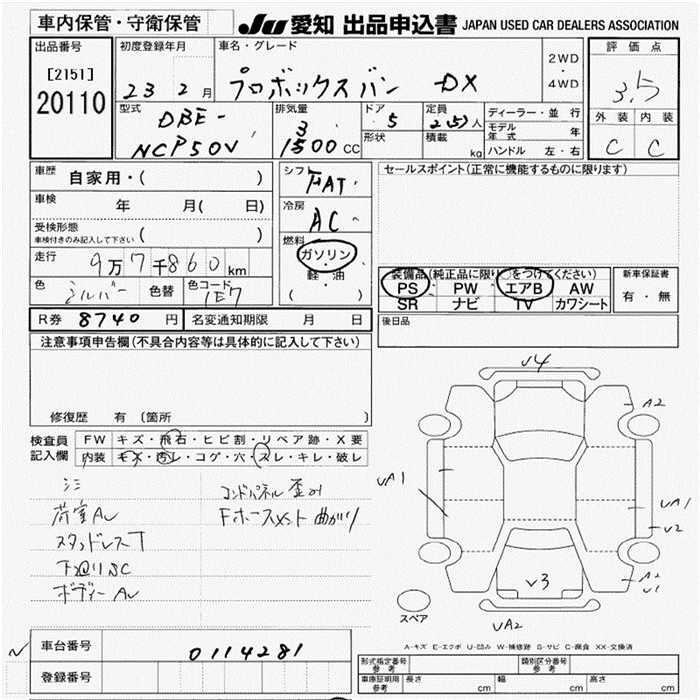 車内保管・守衛保管
JU 愛知 出品申込書 JAPAN USED CAR DEALERS ASSOCIATION
出品番号
[2151]
20110
初度登録年月
23 2 月
車名・グレード
プロボックスバン DX
2WD
・
4WD
評価点
3.5
外装 内装
C C
型式
DBE-
NCP50V
排気量
1500 CC
ドア
5
形状
定員
2(5)人
積載
kg
ディーラー・並行
モデル年式 年
ハンドル 左・右
車歴
自家用・( )
車検
年 月( 日)
受検形態
車検付きのみ記入して下さい ( )
走行
9万7千860km
色
シルバー
色替
色コード
1E7
シフト
FAT
冷房
AC
燃料
ガソリン
・
軽・油
( )
セールスポイント(正常に機能するものに限ります)
装備品(純正品に限り○をつけてください)
PS PW エアB AW
SR ナビ TV カワシート
新車保証書
有・無
後日品
R券 8740 円
名変通知期限 月 日
注意事項申告欄(不具合内容等は具体的に記入して下さい)
修復歴 有(箇所
検査員
記入欄
FW キズ・飛石・ヒビ割・リペア跡・X要
内装 キズ・汚レ・コゲ・穴・スレ・キレ・破レ
荷室AU
スタンドレスT
下廻りSC
ボディーAU
コンドパネル歪み
Fホースメント曲がり
V4
A2
UA1
UA1
U2
A2
U1
V3
UA2
スペア
A-キズ E-エクボ U-凹み W-補修跡 S-サビ C-腐食 XX-交換済
車台番号
0114281
登録番号
形式指定番号
参考
類別区分番号
参考
車庫証明用
参考
長さ cm
幅 cm
高さ cm